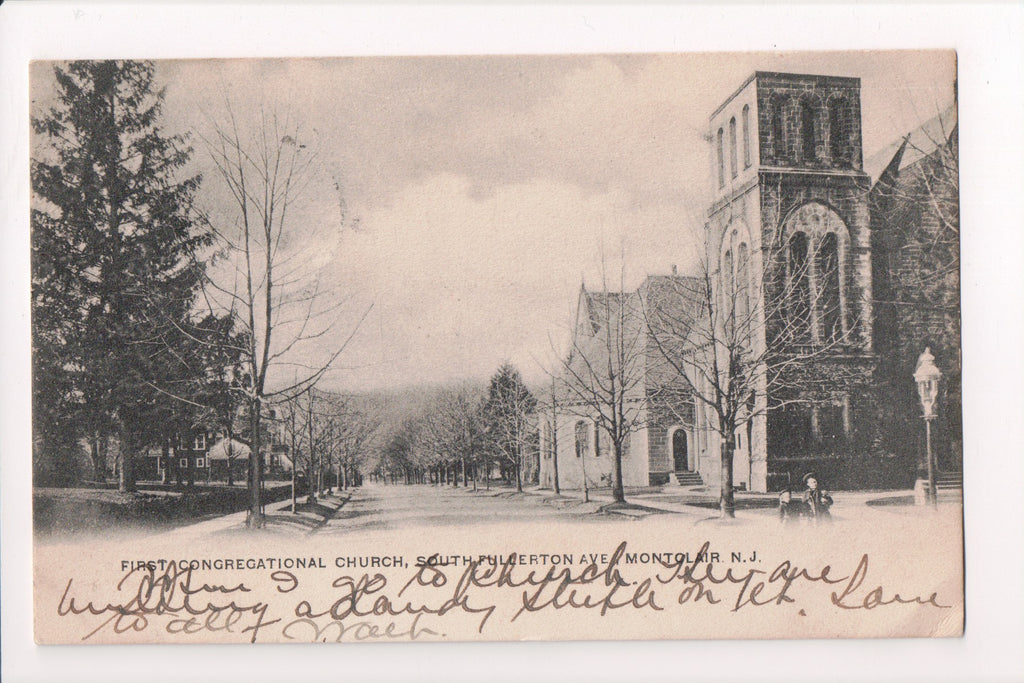 FIRST CONGREGATIONAL CHURCH, SOUTH FULLERTON AVE, MONTCLAIR. N.J.
Where I go to Church. They are
building a dandy steeple on it. Love
to all